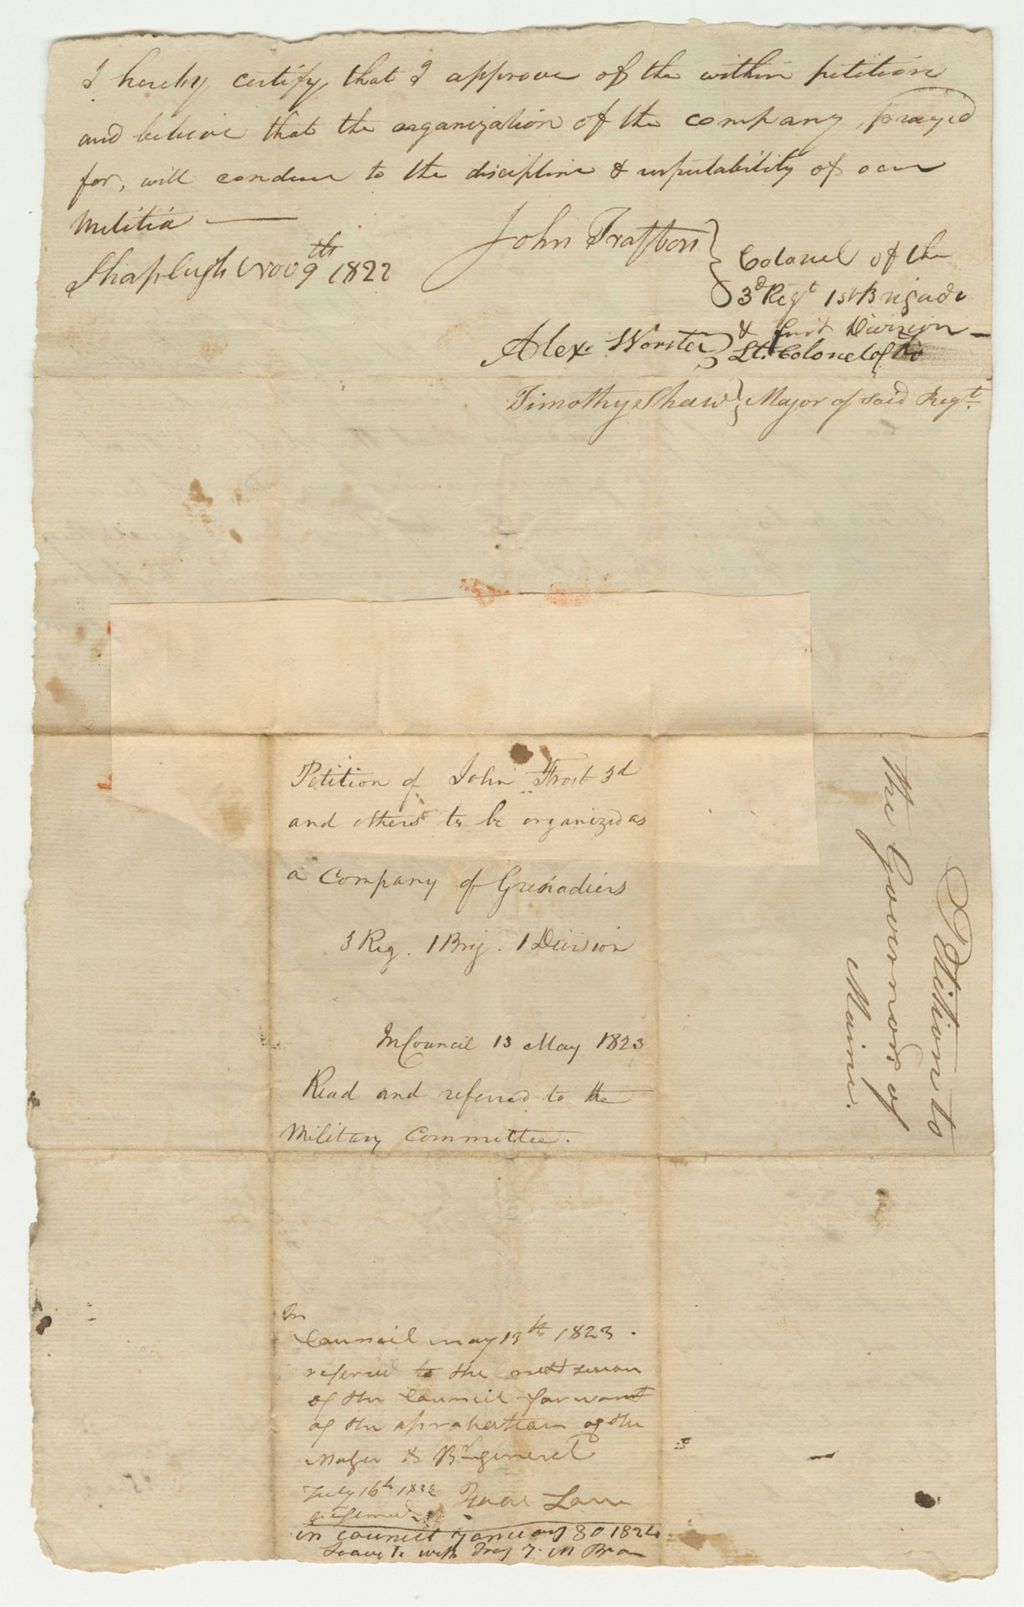 I hereby certify that I approve of the within petition
and believe that the organization of the company, prayed
for, will conduce to the discipline & respectability of our
Militia —
Shapleigh Nov 9th 1822
John Trafton } Colonel of the
3d Regt 1st Brigade
& first Division —
Alexr Worster } Lt. Colonel of Do
Timothy Shaw } Major of said Regt
Petition of John Frost 3d
and others to be organized as
a Company of Grenadiers
3 Reg. 1 Brig. 1 Division
In Council 13 May 1823
Read and referred to the
Military Committee.
Petition to
The Governor of
Maine.
In
Council may 13th 1823.
referred to the next session
of the Council for want
of the aprobation of the
Major & Br general
July 16th 1823 Isaac Lane
in council January 30 1824
Leave to with